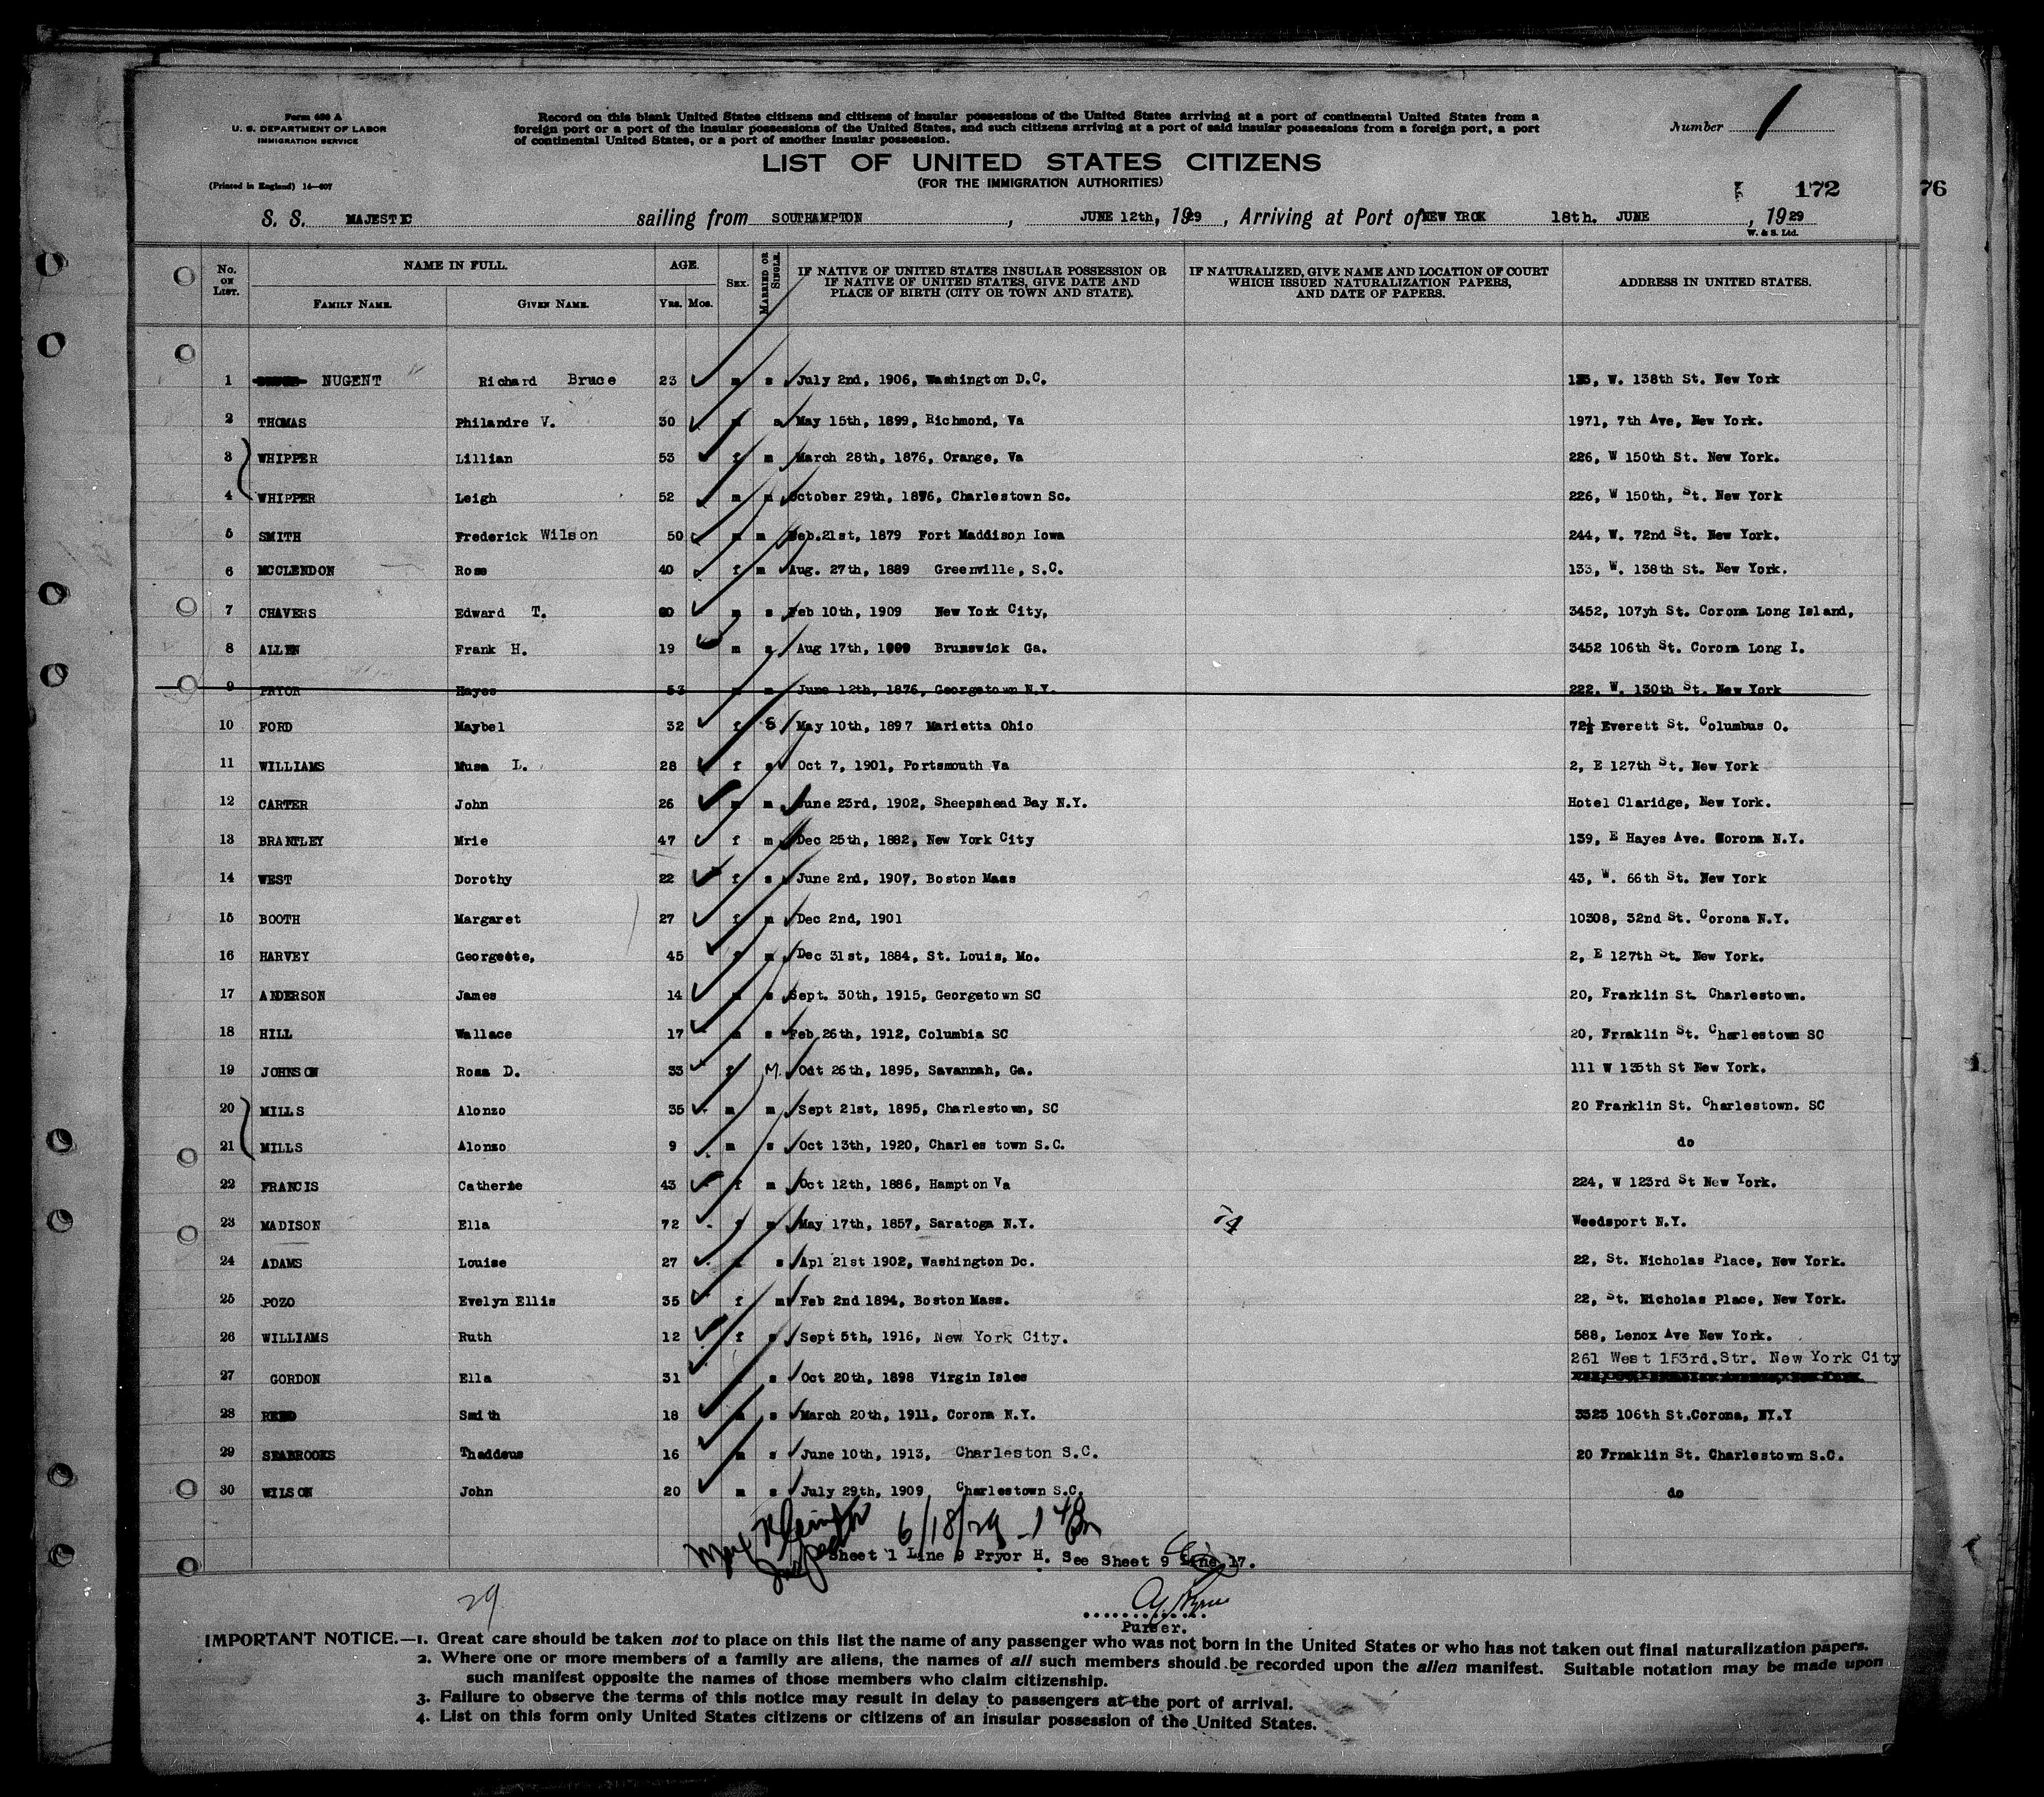 Form 630 A
U. S. DEPARTMENT OF LABOR
IMMIGRATION SERVICE
(Printed in England) 14—607
Record on this blank United States citizens and citizens of insular possessions of the United States arriving at a port of continental United States from a
foreign port or a port of the insular possessions of the United States, and such citizens arriving at a port of said insular possessions from a foreign port, a port
of continental United States, or a port of another insular possession.
Number 1
LIST OF UNITED STATES CITIZENS
(FOR THE IMMIGRATION AUTHORITIES)
172 76
S. S. MAJESTIC sailing from SOUTHAMPTON, JUNE 12th, 1929, Arriving at Port of NEW YROK 18th. JUNE, 1929
W. & S. Ltd.
No. ON LIST. NAME IN FULL. FAMILY NAME. GIVEN NAME. AGE. YRS. MOS. SEX. MARRIED OR SINGLE. IF NATIVE OF UNITED STATES INSULAR POSSESSION OR IF NATIVE OF UNITED STATES, GIVE DATE AND PLACE OF BIRTH (CITY OR TOWN AND STATE). IF NATURALIZED, GIVE NAME AND LOCATION OF COURT WHICH ISSUED NATURALIZATION PAPERS, AND DATE OF PAPERS. ADDRESS IN UNITED STATES.
1 NUGENT Richard Bruce 23 m s July 2nd, 1906, Washington D.C. W. 138th St. New York
2 THOMAS Philandre V. 30 s May 15th, 1899, Richmond, Va 1971, 7th Ave, New York.
3 WHIPPER Lillian 53 f m March 28th, 1876, Orange, Va 226, W 150th St. New York.
4 WHIPPER Leigh 52 m m October 29th, 1876, Charlestown Sc. 226, W 150th, St. New York
5 SMITH Frederick Wilson 50 m m Feb.21st, 1879 Fort Maddison Iowa 244, W. 72nd St. New York.
6 MCCLENDON Rose 40 f m Aug. 27th, 1889 Greenville, S.C. 133, W. 138th St. New York.
7 CHAVERS Edward T. 20 m s Feb 10th, 1909 New York City, 3452, 107yh St. Corona Long Island,
8 ALLEN Frank H. 19 m s Aug 17th, 1909 Brunswick Ga. 3452 106th St. Corona Long I.
9 PRYOR Hayes 53 m m June 12th, 1876, Georgetown N.Y. 222, W. 130th St. New York
10 FORD Maybel 32 f S May 10th, 1897 Marietta Ohio 72½ Everett St. Columbus O.
11 WILLIAMS Musa L. 28 f s Oct 7, 1901, Portsmouth Va 2, E 127th St. New York
12 CARTER John 26 m m June 23rd, 1902, Sheepshead Bay N.Y. Hotel Claridge, New York.
13 BRANTLEY Mrie 47 f m Dec 25th, 1882, New York City 139, E Hayes Ave. Corona N.Y.
14 WEST Dorothy 22 f s June 2nd, 1907, Boston Mass 43, W. 66th St. New York
15 BOOTH Margaret 27 f m Dec 2nd, 1901 10308, 32nd St. Corona N.Y.
16 HARVEY Georgette, 45 f m Dec 31st, 1884, St. Louis, Mo. 2, E 127th St. New York.
17 ANDERSON James 14 m s Sept. 30th, 1915, Georgetown SC 20, Franklin St. Charlestown.
18 HILL Wallace 17 m s Feb 26th, 1912, Columbia SC 20, Frnaklin St. Charlestown SC
19 JOHNSON Rosa D. 33 f M. Oct 26th, 1895, Savannah, Ga. 111 W 135th St New York.
20 MILLS Alonzo 35 m m Sept 21st, 1895, Charlestown, SC 20 Franklin St. Charlestown. SC
21 MILLS Alonzo 9 m s Oct 13th, 1920, Charles town S.C. do
22 FRANCIS Catherie 43 f m Oct 12th, 1886, Hampton Va 224, W 123rd St New York.
23 MADISON Ella 72 f m May 17th, 1857, Saratoga N.Y. 74 Weedsport N.Y.
24 ADAMS Louise 27 s Apl 21st 1902, Washington Dc. 22, St. Nicholas Place, New York.
25 POZO Evelyn Ellis 35 f m Feb 2nd 1894, Boston Mass. 22, St. Nicholas Place, New York.
26 WILLIAMS Ruth 12 f s Sept 5th, 1916, New York City. 588, Lenox Ave New York.
261 West 153rd.Str. New York City
27 GORDON Ella 31 s Oct 20th, 1898 Virgin Isles
28 REED Smith 18 m s March 20th, 1911, Corona N.Y. 3323 106th St.Corona, NY.Y
29 SEABROOKS Thaddeus 16 m s June 10th, 1913, Charleston S.C. 20 Frnaklin St. Charlestown S.C.
30 WILSON John 20 m s July 29th, 1909, Charlestown S.C. do
Inspector 6/18/29
Sheet 1 Line 9 Pryor H. See Sheet 9 Line 17.
29
Purser.
IMPORTANT NOTICE.—1. Great care should be taken not to place on this list the name of any passenger who was not born in the United States or who has not taken out final naturalization papers.
2. Where one or more members of a family are aliens, the names of all such members should be recorded upon the alien manifest. Suitable notation may be made upon
such manifest opposite the names of those members who claim citizenship.
3. Failure to observe the terms of this notice may result in delay to passengers at the port of arrival.
4. List on this form only United States citizens or citizens of an insular possession of the United States.